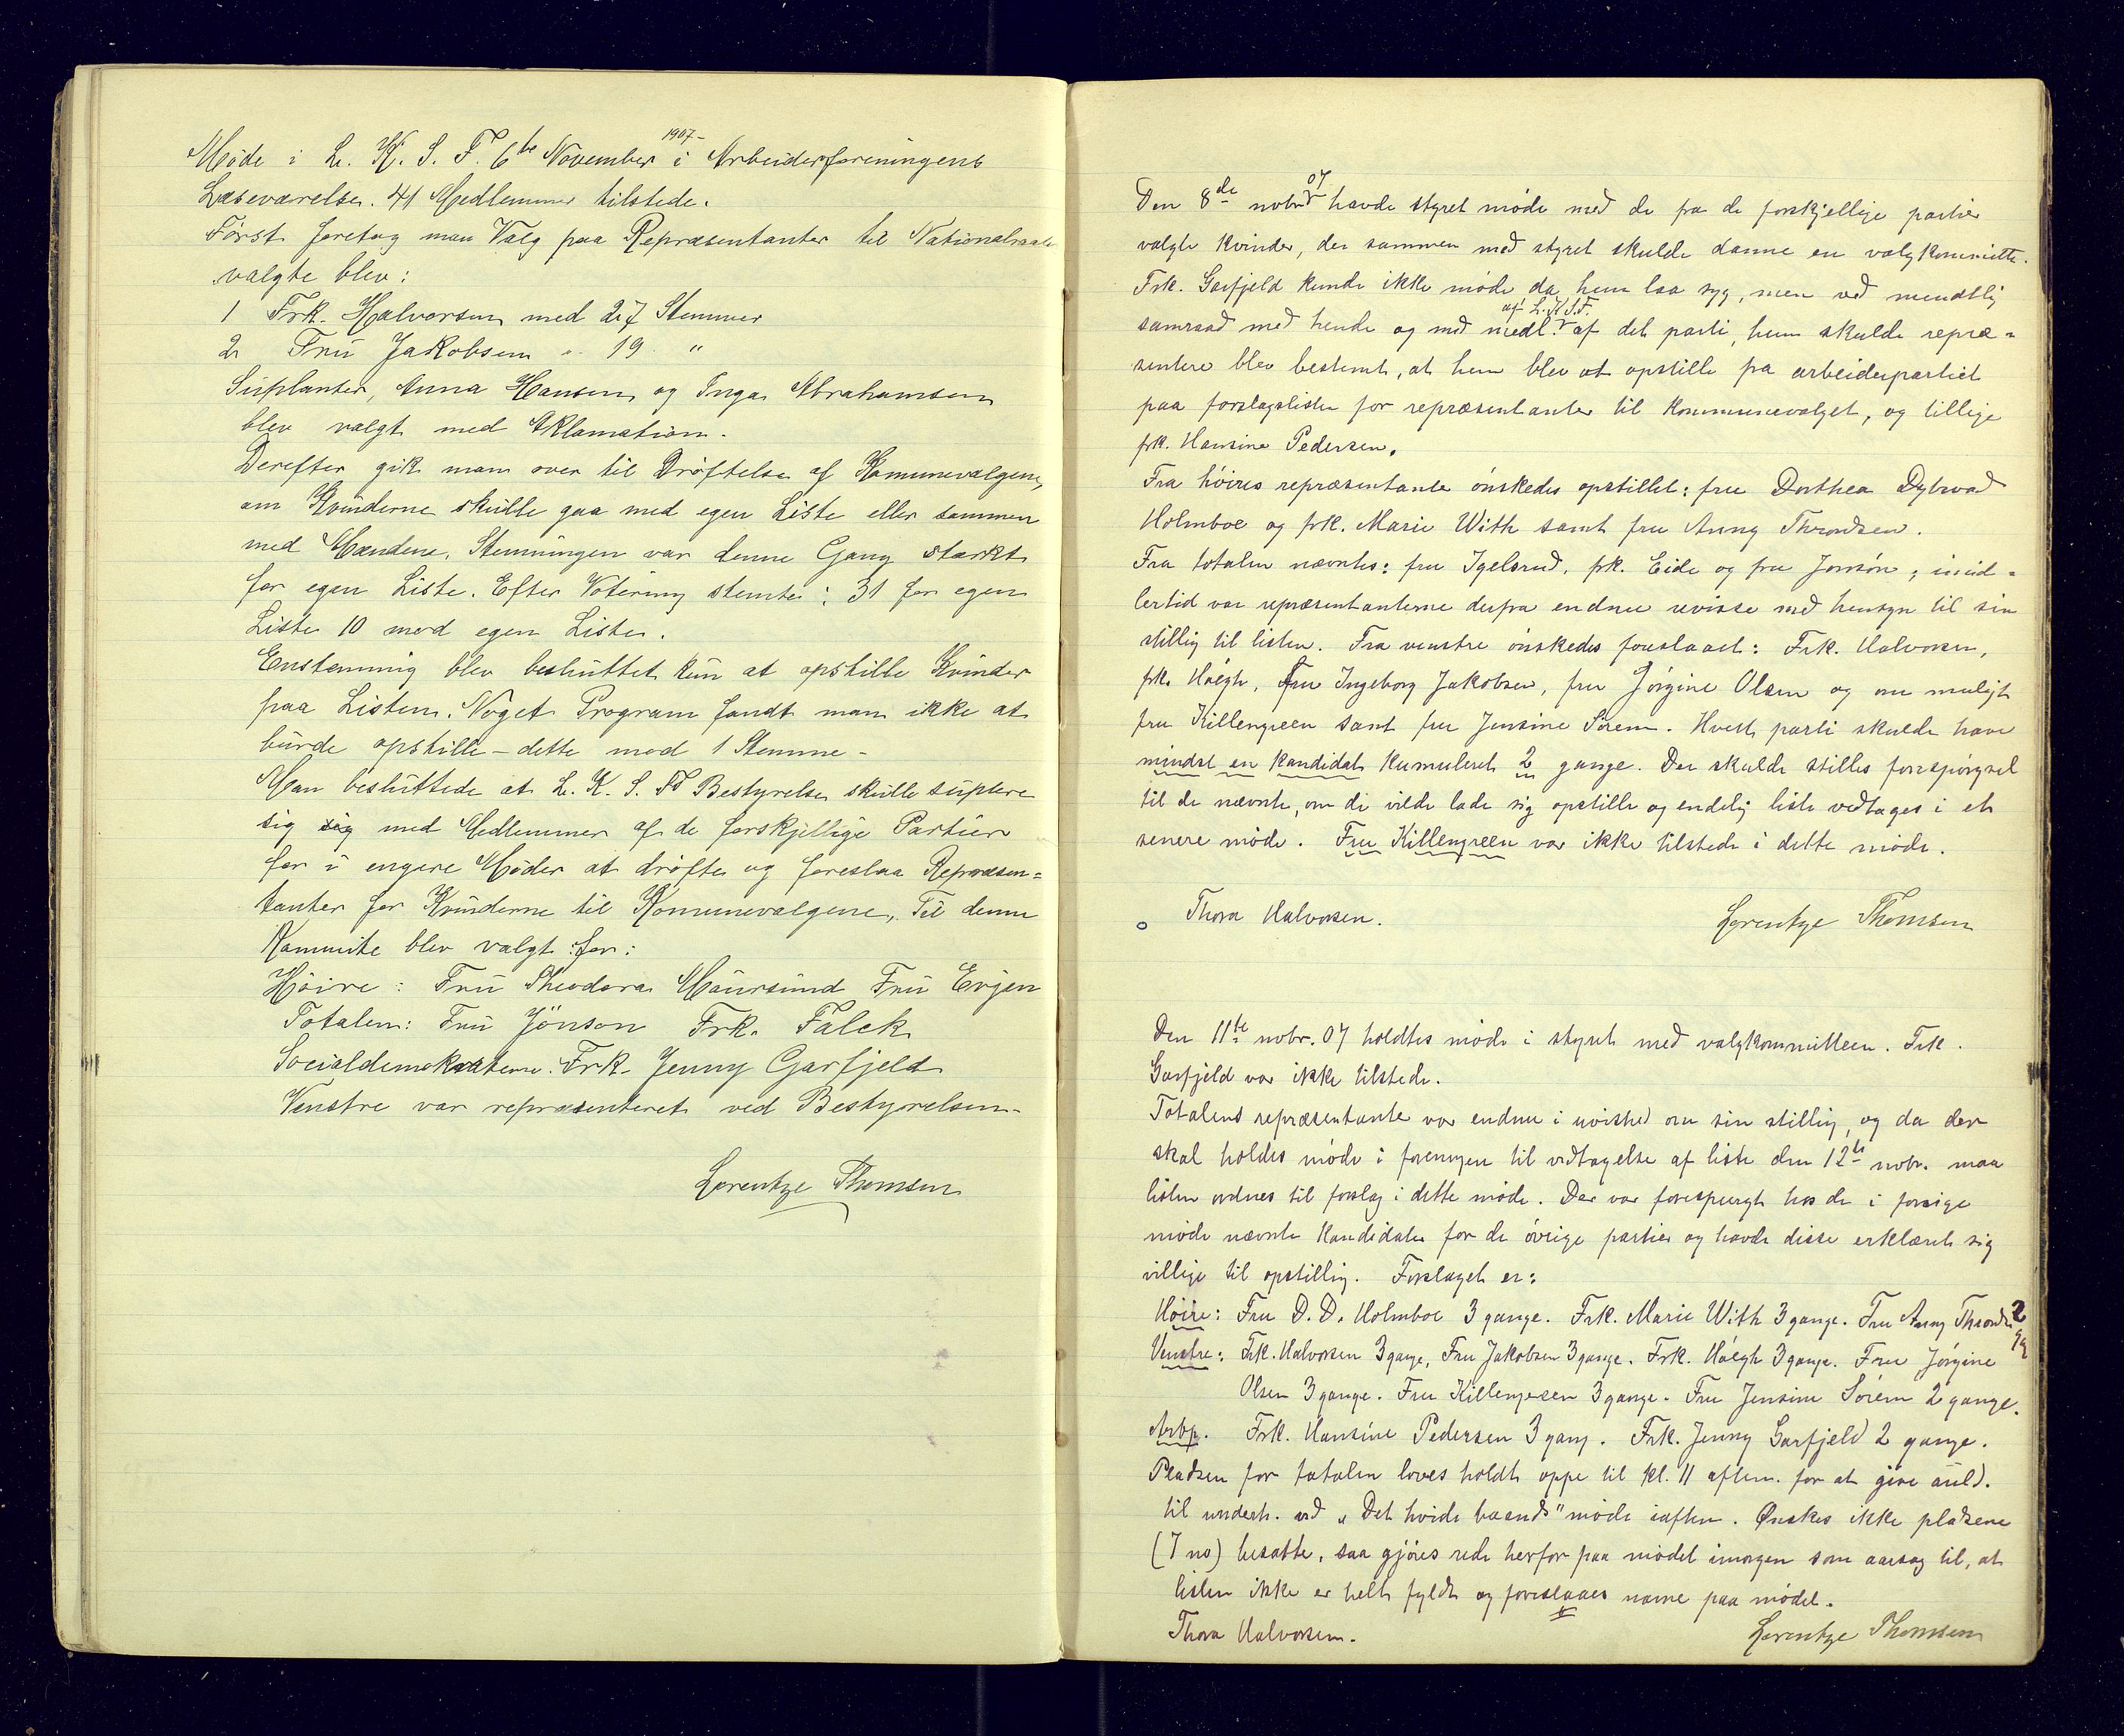 Möde i L. K. S. F. 6te November 1907 i Arbeiderforeningens
Læseværelse. 41 Medlemmer tilstede.
Först foretog man Valg paa Repræsentanter til Nationalraadet
valgte blev:
1 Frk. Halvorsen med 27 Stemmer
2 Fru Jakobsen " 19 "
Suplanter, Anna Hansen og Inga Abrahamsen
blev valgt med Aklamation.
Derefter gik man over til Dröftelse af Komunevalgene,
om Kvinderne skulle gaa med egen Liste eller sammen
med Mændene. Stemningen var denne Gang stærkt
for egen Liste. Efter Votering stemte: 31 for egen
Liste 10 mod egen Liste.
Enstemmig blev besluttet kun at opstille Kvinder
paa Listen. Noget Program fandt man ikke at
burde opstille – dette mod 1 Stemme –
Man besluttede at L. K. S. Fs Bestyrelse skulle suplere
sig sig med Medlemmer af de forskjellige Partier
for i engere Möder at dröfte og foreslaa Repræsen=
tanter for Kvinderne til Komunevalgene, Til denne
Kommite blev valgt for:
Höire: Fru Theodora Maursund Fru Evjen
Totalen: Fru Jönson Frk. Falck
Socialdemokraterne. Frk. Jenny Garfjeld
Venstre var repræsenteret ved Bestyrelsen –
Lorentze Thomsen
Den 8de nobr 07 havde styret möde med de fra de forskjellige partier
valgte kvinder, der sammen med styret skulde danne en valgkommitte.
Frk. Garfjeld kunde ikke möde da hun laa syg, men ved mundtlig
samraad med hende og med medl. af L. K. S. F. af det parti, hun skulde repræ=
sentere blev bestemt, at hun blev at opstille fra arbeiderpartiet
paa forslagsliste for repræsentanter til kommunevalget, og tillige
frk. Hansine Pedersen.
Fra höires repræsentanter önskedes opstillet: fru Dorthea Dybvad
Holmboe og frk. Marie With samt fru Anny Throndsen.
Fra totalen nævntes: fru Igelsrud, frk. Eide og fru Jonsön; imid=
lertid var repræsentanterne derfra endnu uvisse med hensyn til sin
stillig til listen. Fra venstre önskedes foreslaaet: Frk. Halvorsen,
frk. Höegh, Fru Ingeborg Jakobsen, fru Jörgine Olsen og om muligt
fru Killengreen samt fru Jensine Sörem. Hvert parti skulde have
mindst en kandidat kumuleret 2 gange. Der skulde stilles forespörgsel
til de nævnte, om de vilde lade sig opstille og endelig liste vedtages i et
senere möde. Fru Killengreen var ikke tilstede i dette möde.
Thora Halvorsen. Lorentze Thomsen
Den 11te nobr. 07 holdtes möde i styret med valgkommitteen. Frk.
Garfjeld var ikke tilstede.
Totalens repræsentanter var endnu i uvished om sin stillig, og da der
skal holdes möde i foreningen til vedtagelse af liste den 12te nobr. maa
listen ordnes til forslag i dette möde. Der var forespurgt hos de i forrige
möde nævnte kandidater for de övrige partier og havde disse erklæret sig
villige til opstillig. Forslaget er:
Höire: Fru D. D. Holmboe 3 gange. Frk. Marie With 3 gange. Fru Anny Throndsen 2 gg
Venstre: Frk. Halvorsen 3 gange, Fru Jakobsen 3 gange. Frk. Höegh 3 gange. Fru Jörgine
Olsen 3 gange. Fru Killengreen 3 gange. Fru Jensine Sörem 2 gange.
Arbp. Frk. Hansine Pedersen 3 gang. Frk. Jenny Garfjeld 2 gange.
Pladsen for totalen loves holdt oppe til kl. 11 aften. for at give anld.
til underh. ved „Det hvide baands" möde iaften. Ønskes ikke pladsene
(7 no) besatte, saa gjöres rede herfor paa mödet imorgen som aarsag til, at
listen ikke er helt fyldt og foreslaaes navne paa mödet.
Thora Halvorsen. Lorentze Thomsen